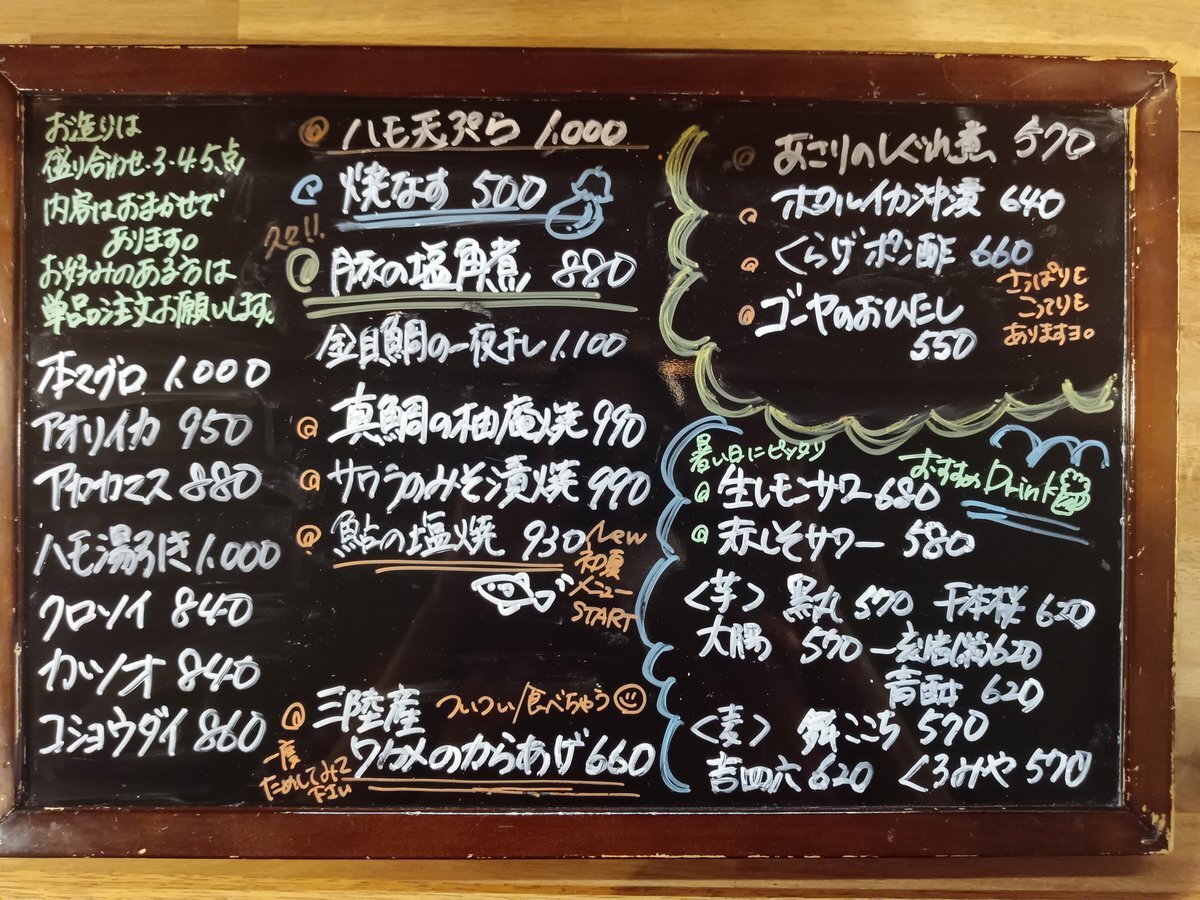 お造りは
盛り合わせ・3・4・5点
内容はおまかせで
あります。
お好みのある方は
単品ご注文お願いします。
本マグロ 1,000
アオリイカ 950
アカカマス 880
ハモ湯引き 1,000
クロソイ 840
カツオ 840
コショウダイ 860
ハモ天ぷら 1,000
焼なす 500
久々!!
豚の塩角煮 880
金目鯛の一夜干し 1,100
真鯛の柚庵焼 990
サワラのみそ漬焼 990
鮎の塩焼 930
New
初夏
メニュー
START
三陸産 ついつい食べちゃう
ワカメのからあげ 660
一度
ためしてみて
下さい
あさりのしぐれ煮 570
ホタルイカ沖漬 640
くらげポン酢 660
ゴーヤのおひたし
550
さっぱりも
こってりも
ありますョ。
暑い日にピッタリ
おすすめ Drink
生レモンサワー 680
赤しそサワー 580
<芋> 黒丸 570 千本桜 620
大陽 570 一刻岩(紫) 620
青酎 620
<麦> 舞ここち 570
吉四六 620 くろみや 570